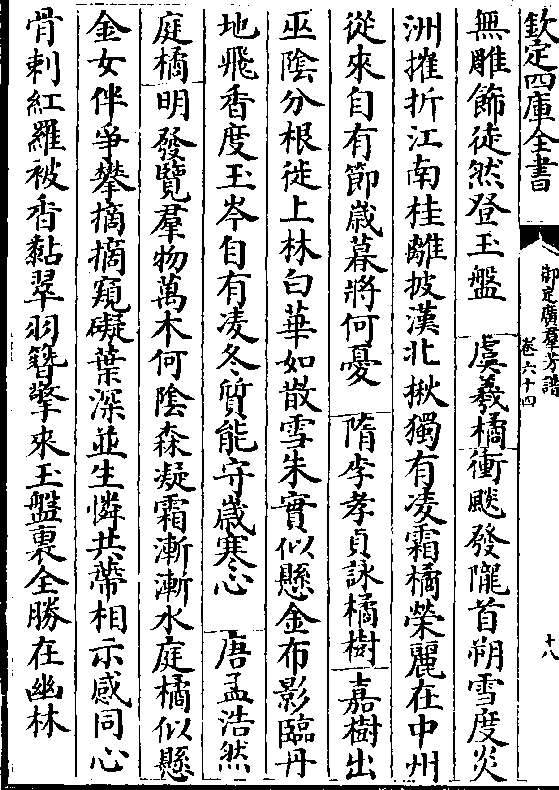 欽定四庫全書
御定廣群芳譜
卷六十四
十八
無雕飾徒然登玉盤　虞羲橘衝飈發隴首朔雪度炎
洲摧折江南桂離披漢北楸獨有凌霜橘榮麗在中州
從來自有節歲暮將何憂　隋李孝貞詠橘樹嘉樹出
巫陰分根徙上林白華如散雪朱實似懸金布影臨丹
地飛香度玉岑自有凌冬質能守歲寒心　唐孟浩然
庭橘明發覽羣物萬木何陰森凝霜漸漸水庭橘似懸
金女伴爭攀摘摘窺礙葉深並生憐共蒂相示感同心
骨刺紅羅被香黏翠羽簪擎來玉盤裏全勝在幽林